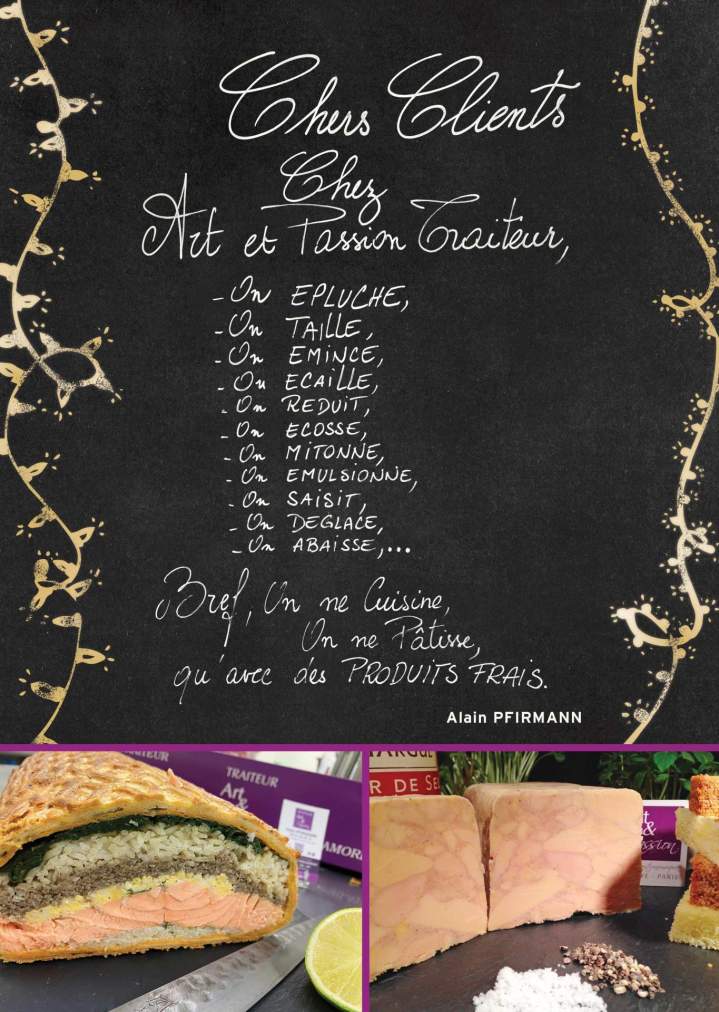 Chers Clients
Chez
Art et Passion Traiteur,
- On EPLUCHE,
- On TAILLE,
- On EMINCE,
- On ECAILLE,
- On REDUIT,
- On ECOSSE,
- On MITONNE,
- On EMULSIONNE,
- On SAISIT,
- On DEGLACE,
- On ABAISSE,...
Bref, On ne Cuisine,
On ne Pâtisse,
qu'avec des PRODUITS FRAIS.
Alain PFIRMANN
TRAITEUR
Art
&
R DE SE
&
PARIS